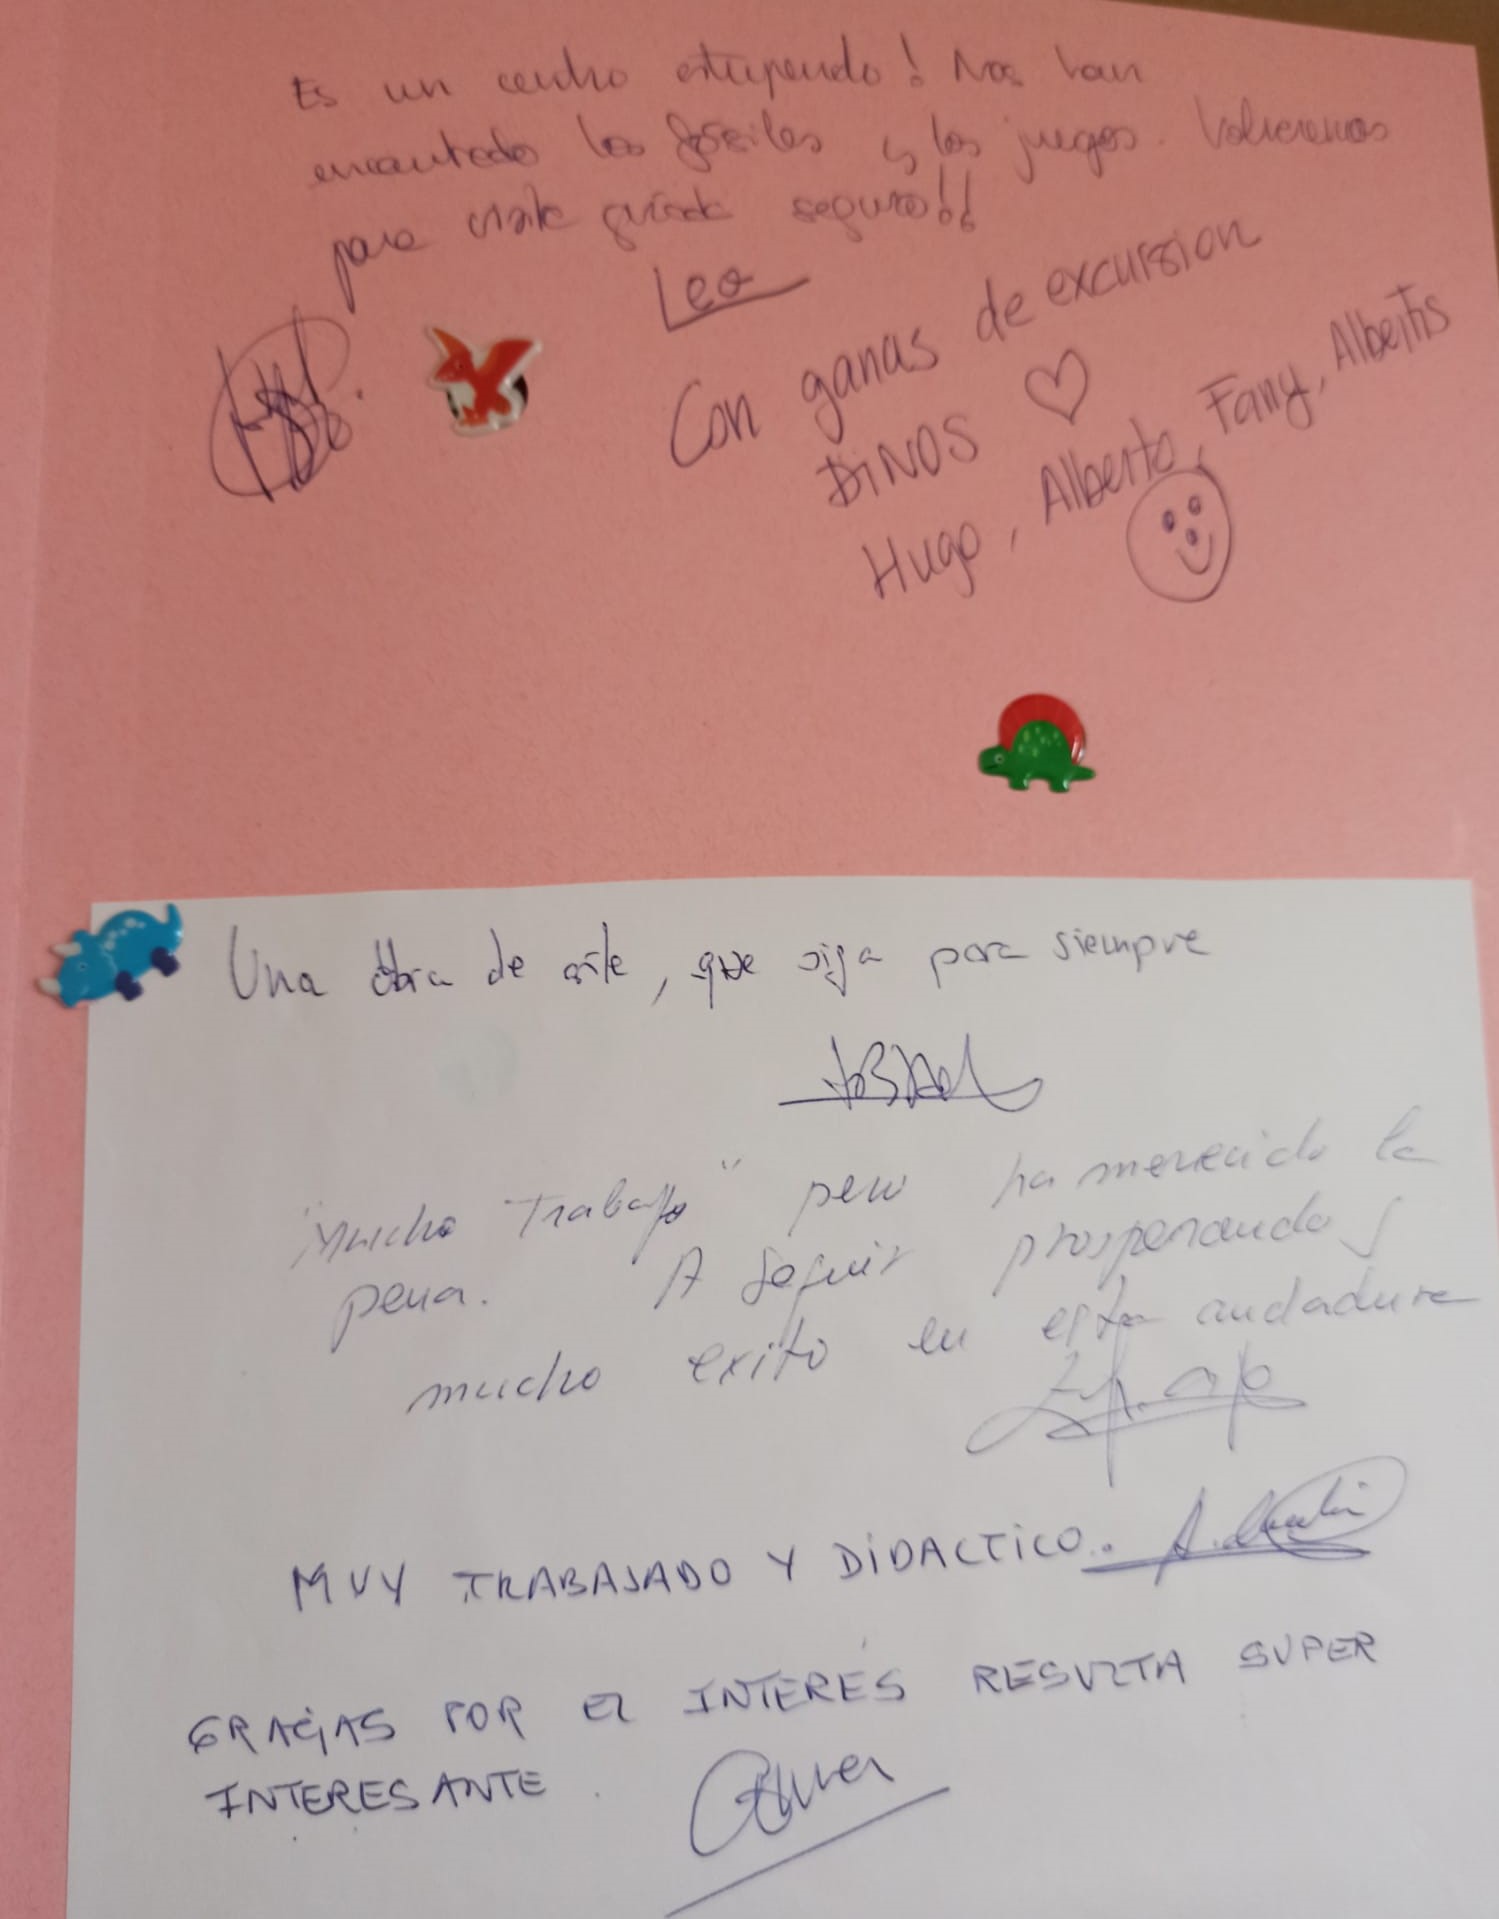 Es un centro estupendo! Nos han
encantado los fósiles y los juegos. Volveremos
para visita guiada seguro!!
Leo
Con ganas de excursion
DINOS
Hugo, Alberto, Fany, Albertis
Una obra de arte, que siga para siempre
"Mucho Trabajo" pero ha merecido la
pena. A seguir prosperando y
mucho exito en esta andadura
MUY TRABAJADO Y DIDACTICO..
GRACIAS POR EL INTERÉS RESULTA SUPER
INTERESANTE.